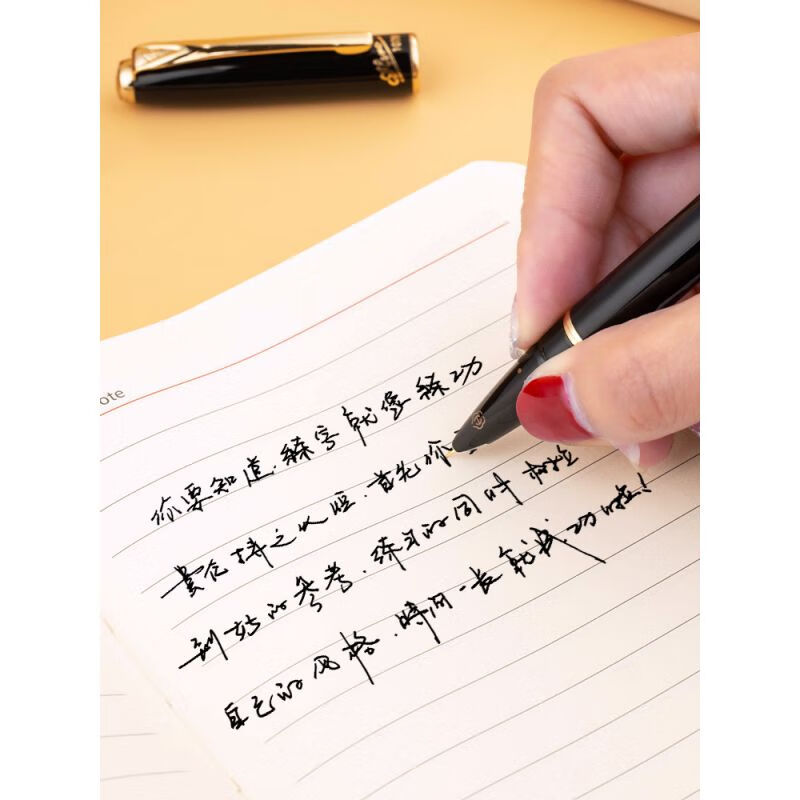 ote
你要知道.练字就像练功
贵在持之以恒.首先你
到好的参考.练习的同时
自己的风格.时间一长就成功啦!